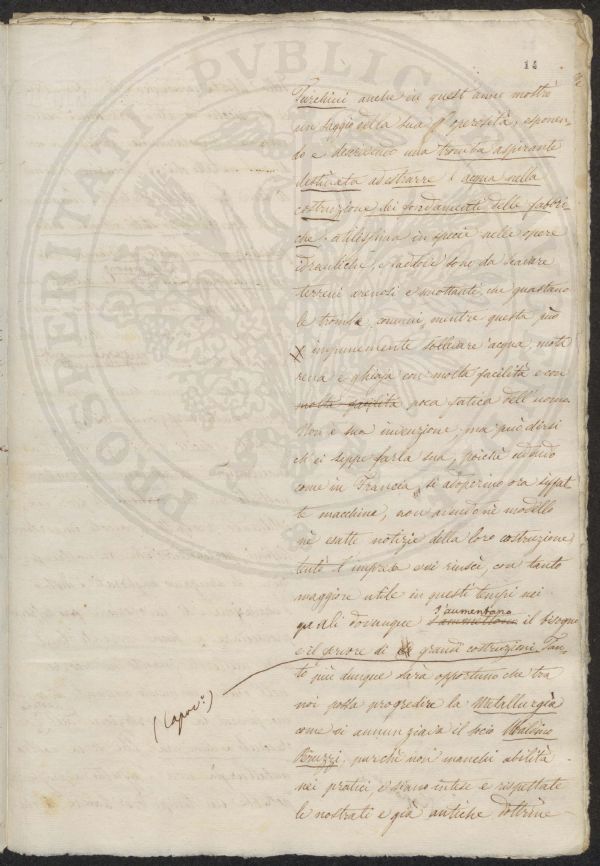 14
Turchini anche in quest'anno mostrò
un saggio della sua operosità, esponen-
do e descrivendo una tromba aspirante
destinata ad estrarre l'acqua nella
costruzione dei fondamenti delle fabbri-
che, utilissima in specie nelle opere
idrauliche, e laddove sono da scavare
terreni arenosi e smottanti, che guastano
le trombe comuni, mentre questa può
impunemente sollevare acqua, mota
rena e ghiaja con molta facilità e con
molta facilità poca fatica dell'uomo
Non è sua invenzione, ma può dirsi
ch'ei seppe farla sua, poichè udendo
come in Francia si adoperino ora siffat
te macchine, non avendone modello
nè esatte notizie della loro costruzione
tentò l'impresa e vi riuscì, con tanto
maggiore utile in questi tempi nei
quali dovunque s'aumentano il bisogno
e il fervore di grandi costruzioni. Tan-
to più dunque sarà opportuno che tra
(Capov:)
noi possa progredire la Metallurgia
come ci annunziava il socio
Peruzzi, purchè non manchi abilità
nei pratici, e siano intese e rispettate
le nostrali e già antiche dottrine
PROSPERITATI PUBLIC